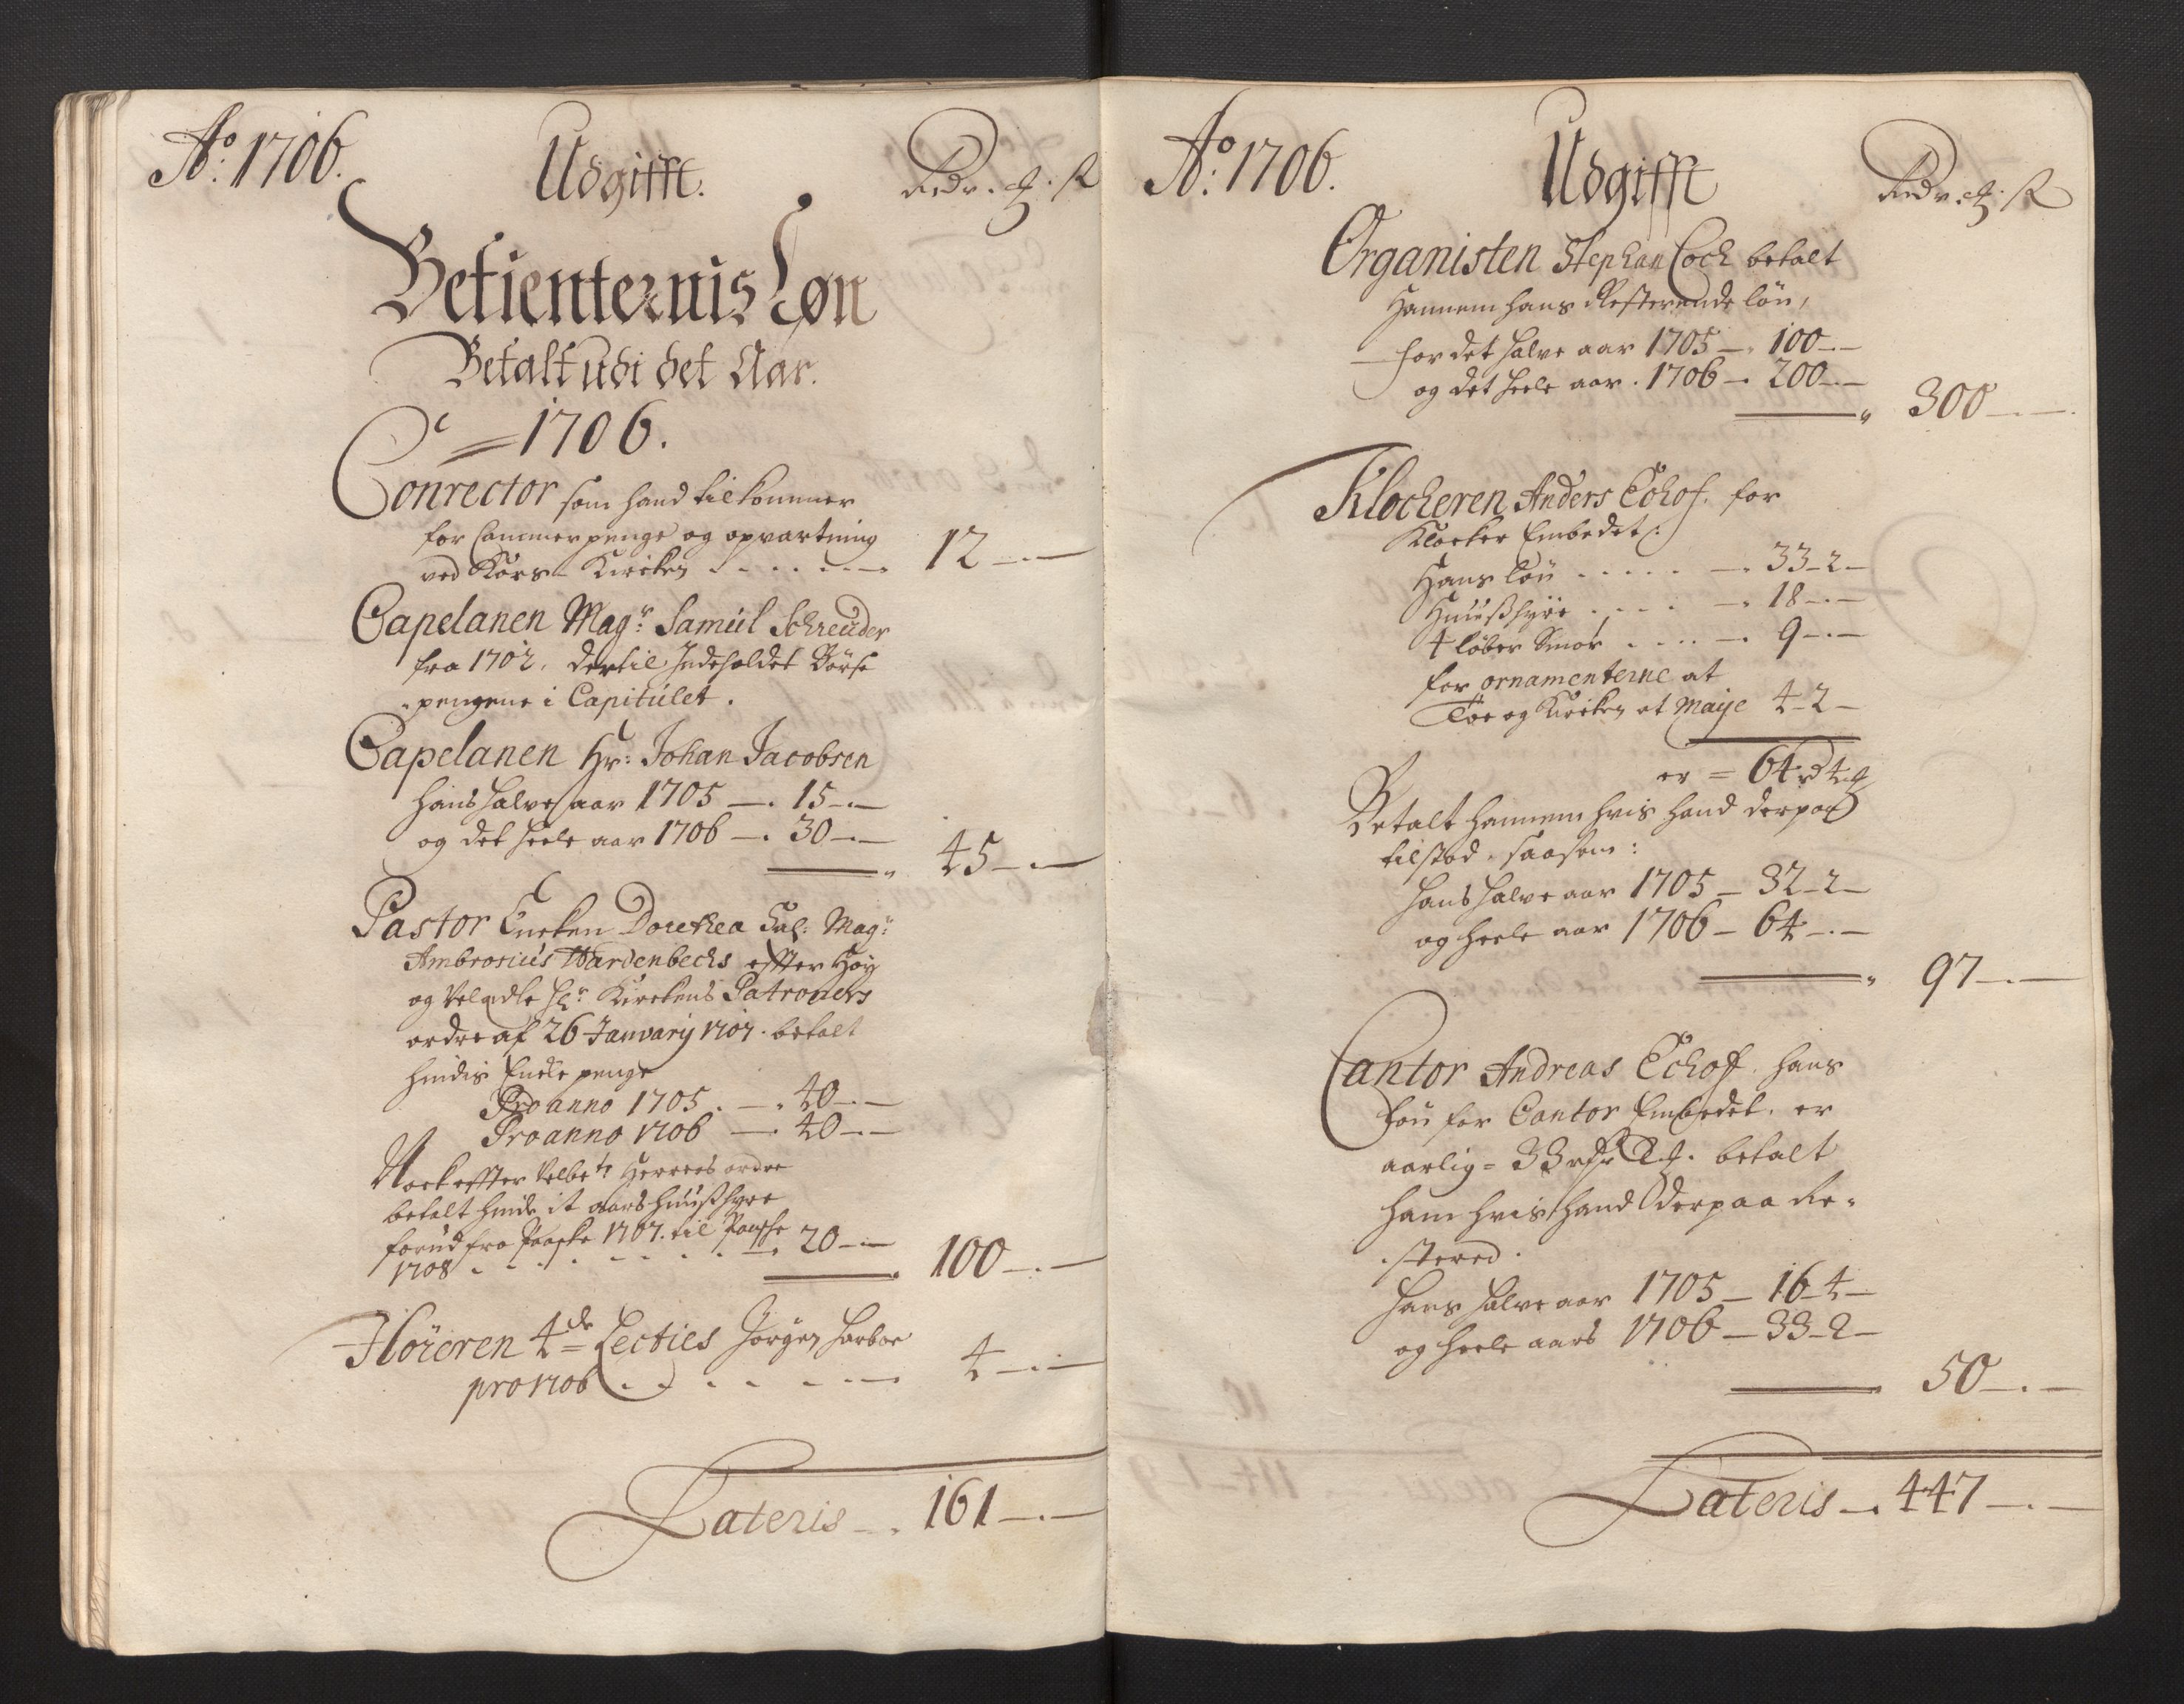 Ao: 1706.
Udgifft.
Betienternis Løn
Betalt udi det Aar.
1706.
Conrector som hand tilkommer
for Cammerpenge og opvartning
ved Kors-Kircken 12
Capelanen Magr: Samuel Schreuder
fra 1702. dertil Indeholdet Børse
pengene i Capitulet.
Capelanen Hr: Johan Jacobsen
hans halve aar 1705 — 15
og det heele aar 1706 — 30
45
Pastor Encken Dorethea Sal: Magr:
Ambrosius Hardenbechs effter Høy
og Velædle Hr Kirckens Patroners
ordre af 26 January 1707. betalt
hindis Encke penge
Pro anno 1705. — 40
Pro anno 1706 — 40
Nock effter Velbte Herrers ordre
betalt hinde it aars huusshyre
forud fra Paaske 1707. til Paasche
1708 — 20
100
Høreren 4de Lecties Jørgen Harboe
pro 1706 4
Lateris 161
Ao: 1706.
Udgifft
Organisten Stephan Coch betalt
Hannem hans Resterende løn,
for det halve aar 1705 — 100
og det heele aar. 1706 — 200
300
Klocheren Anders Echof. for
Klocker Embedet:
Hans løn — 33-2-
Huusshyre — 18
4 løber Smør — 9
for ornamenterne at
Toe og Kircken at Maije 4-2-
er = 64 rd 4
Betalt hannem hvis hand derpaa
tilstod, saasom:
hans halve aar 1705 — 32-2-
og heele aar 1706 — 64
97
Cantor Andreas Echoff. hans
Løn for Cantor Embedet. er
aarlig = 33 rdr 2. betalt
ham hvis hand derpaa Re-
stered.
hans halve aar 1705 — 16-4-
og heele aars 1706 — 33-2-
50
Lateris — 447